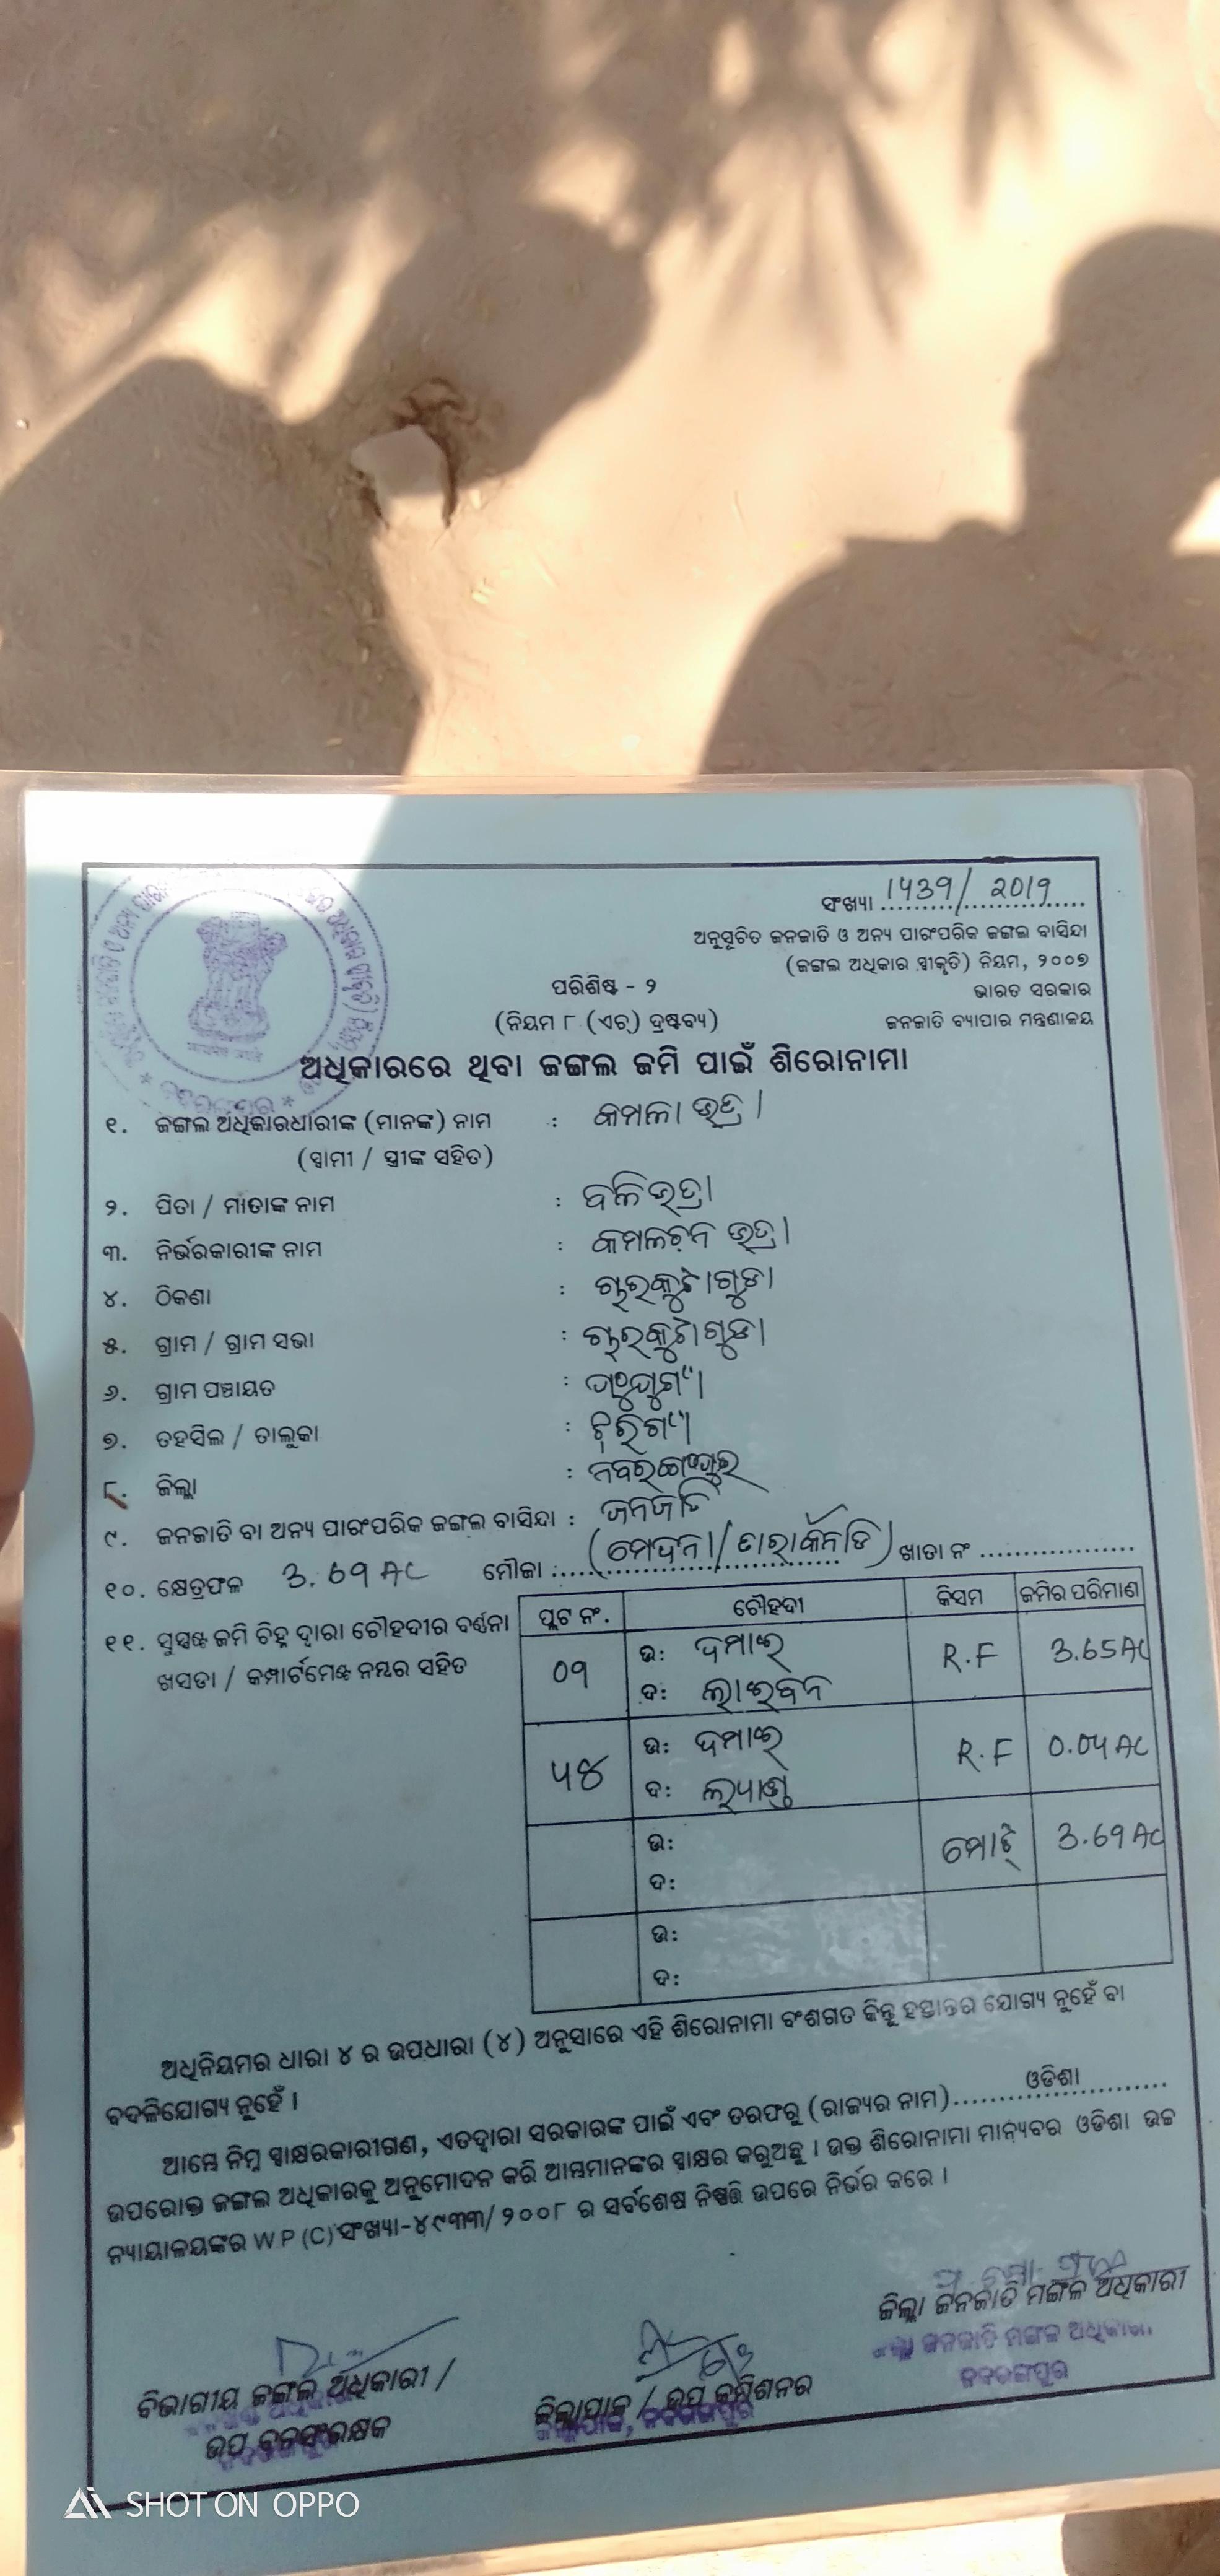 ସଂଖ୍ୟା 1439/2019
ଅନୁସୂଚିତ ଜନଜାତି ଓ ଅନ୍ୟ ପାରଂପରିକ ଜଙ୍ଗଲ ବାସିନ୍ଦା
(ଜଙ୍ଗଲ ଅଧିକାର ସ୍ୱୀକୃତି) ନିୟମ, ୨୦୦୭
ପରିଶିଷ୍ଟ - ୨
ଭାରତ ସରକାର
(ନିୟମ ୮ (ଏଚ୍) ଦ୍ରଷ୍ଟବ୍ୟ)
ଜନଜାତି ବ୍ୟାପାର ମନ୍ତ୍ରଣାଳୟ
ଅଧିକାରରେ ଥିବା ଜଙ୍ଗଲ ଜମି ପାଇଁ ଶିରୋନାମା
୧. ଜଙ୍ଗଲ ଅଧିକାରଧାରୀଙ୍କ (ମାନଙ୍କ) ନାମ : କମଳା ଭତ୍ରା
(ସ୍ୱାମୀ / ସ୍ତ୍ରୀଙ୍କ ସହିତ)
୨. ପିତା / ମାତାଙ୍କ ନାମ : ବଳି ଭତ୍ରା
୩. ନିର୍ଭରକାରୀଙ୍କ ନାମ : କମଳଚନ ଭତ୍ରା
୪. ଠିକଣା :
୫. ଗ୍ରାମ / ଗ୍ରାମ ସଭା :
୬. ଗ୍ରାମ ପଞ୍ଚାୟତ :
୭. ତହସିଲ / ତାଲୁକା : ଝରିଗାଁ
୮. ଜିଲ୍ଲା : ନବରଙ୍ଗପୁର
୯. ଜନଜାତି ବା ଅନ୍ୟ ପାରଂପରିକ ଜଙ୍ଗଲ ବାସିନ୍ଦା : ଜନଜାତି
୧୦. କ୍ଷେତ୍ରଫଳ 3.69 AC ମୌଜା : ଖାତା ନଂ
୧୧. ସୁସ୍ପଷ୍ଟ ଜମି ଚିହ୍ନ ଦ୍ୱାରା ଚୌହଦୀର ବର୍ଣ୍ଣନା
ଖସଡା / କମ୍ପାର୍ଟମେଣ୍ଟ ନମ୍ବର ସହିତ
ପ୍ଲଟ ନଂ. ଚୌହଦୀ କିସମ ଜମିର ପରିମାଣ
09 ଉ: ଦମାଇ R.F 3.65 AC
ଦ:
ଉ: ଦମାଇ R.F 0.04 AC
ଦ:
ଉ: ମୋଟ୍ 3.69 AC
ଦ:
ଉ:
ଦ:
ଅଧିନିୟମର ଧାରା ୪ ର ଉପଧାରା (୪) ଅନୁସାରେ ଏହି ଶିରୋନାମା ବଂଶଗତ କିନ୍ତୁ ହସ୍ତାନ୍ତର ଯୋଗ୍ୟ ନୁହେଁ ବା
ବଦଳିଯୋଗ୍ୟ ନୁହେଁ ।
ଆମ୍ଭେ ନିମ୍ନ ସ୍ୱାକ୍ଷରକାରୀଗଣ, ଏତଦ୍ୱାରା ସରକାରଙ୍କ ପାଇଁ ଏବଂ ତରଫରୁ (ରାଜ୍ୟର ନାମ) ଓଡିଶା
ଉପରୋକ୍ତ ଜଙ୍ଗଲ ଅଧିକାରକୁ ଅନୁମୋଦନ କରି ଆମ୍ଭମାନଙ୍କର ସ୍ୱାକ୍ଷର କରୁଅଛୁ । ଉକ୍ତ ଶିରୋନାମା ମାନ୍ୟବର ଓଡିଶା ଉଚ୍ଚ
ନ୍ୟାୟାଳୟଙ୍କର W.P (C) ସଂଖ୍ୟା-୪୯୩୩/୨୦୦୮ ର ସର୍ବଶେଷ ନିଷ୍ପତ୍ତି ଉପରେ ନିର୍ଭର କରେ ।
ଜିଲ୍ଲା ଜନଜାତି ମଙ୍ଗଳ ଅଧିକାରୀ
ଜିଲ୍ଲା ଜନଜାତି ମଙ୍ଗଳ ଅଧିକାରୀ
ନବରଙ୍ଗପୁର
ବିଭାଗୀୟ ଜଙ୍ଗଲ ଅଧିକାରୀ /
ଉପ ବନସଂରକ୍ଷକ
ଜିଲ୍ଲାପାଳ / ଉପ କମିଶନର
ଜିଲ୍ଲାପାଳ, ନବରଙ୍ଗପୁର
SHOT ON OPPO